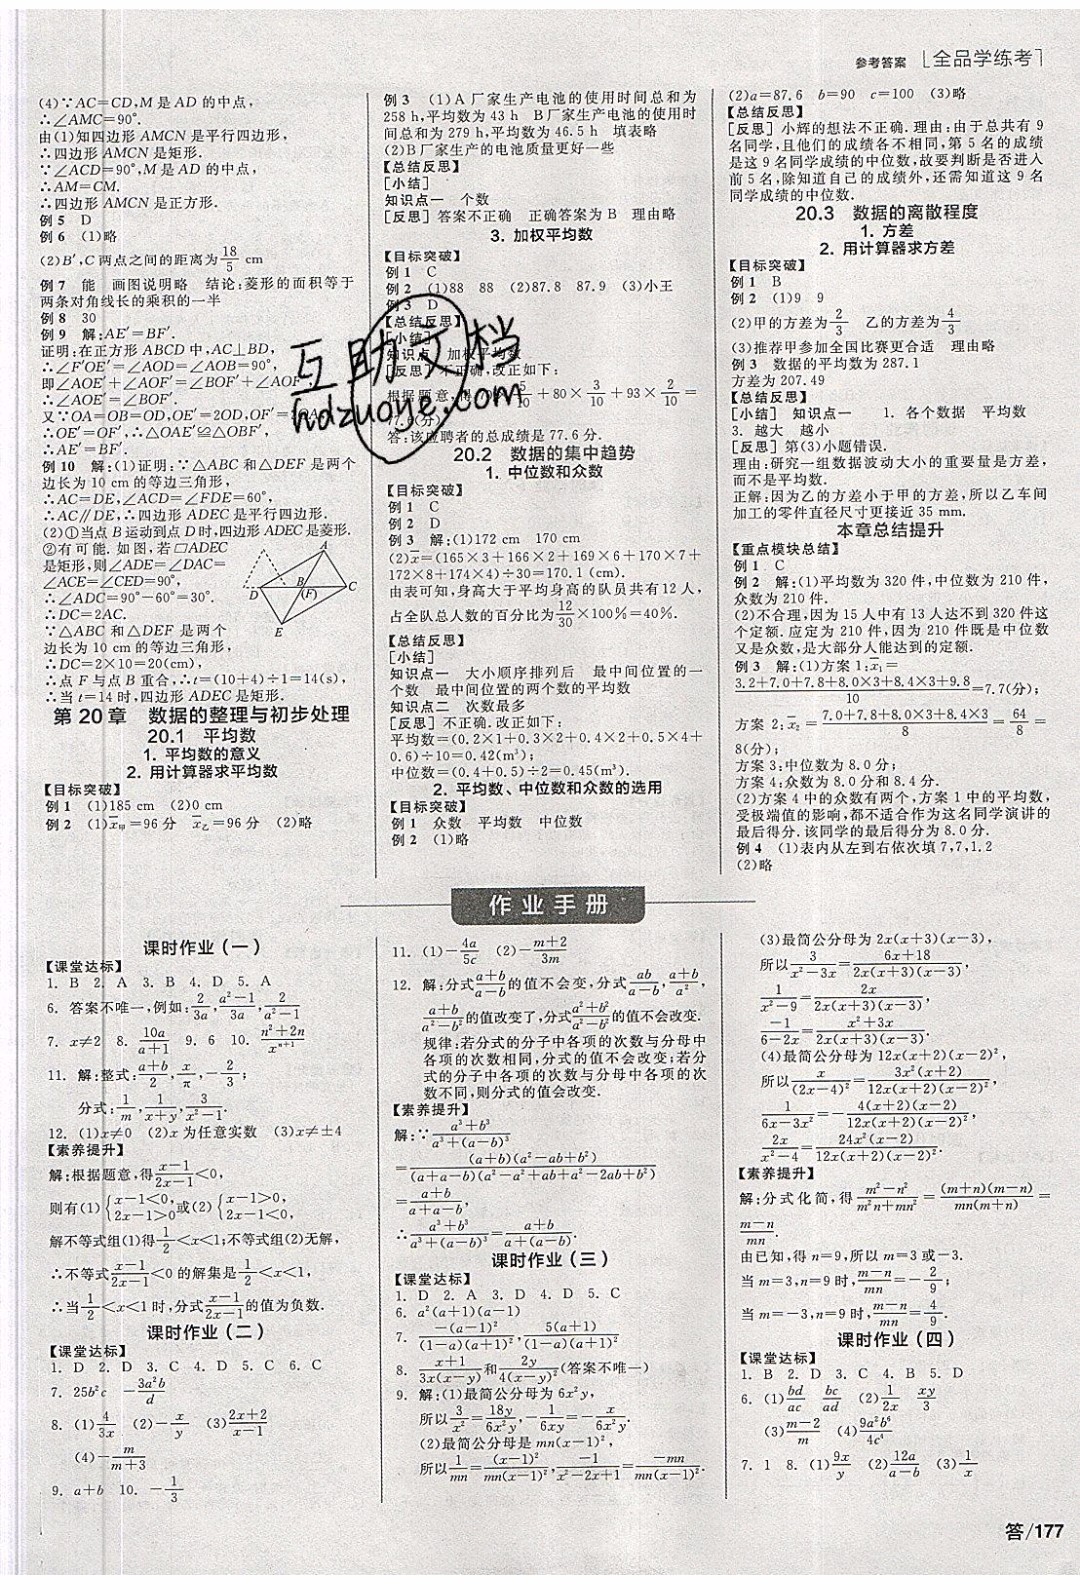 参考答案 [全品学练考]
(4)∵AC=CD,M是AD的中点,
∴∠AMC=90°.
由(1)知四边形AMCN是平行四边形,
∴四边形AMCN是矩形.
∵∠ACD=90°,M是AD的中点,
∴AM=CM.
∴四边形AMCN是正方形.
例5 D
例6 (1)略
(2)B′,C两点之间的距离为18/5 cm
例7 能 画图说明略 结论:菱形的面积等于
两条对角线长的乘积的一半
例8 30
例9 解:AE′=BF′.
证明:在正方形ABCD中,AC⊥BD,
∴∠F′OE′=∠AOD=∠AOB=90°,
即∠AOE′+∠AOF′=∠BOF′+∠AOF′
∴∠AOE′=∠BOF′.
又∵OA=OB=OD,OE′=2OD,OF′=2OA,
∴OE′=OF′,∴△OAE′≌△OBF′,
∴AE′=BF′.
例10 解:(1)证明:∵△ABC和△DEF是两个
边长为10 cm的等边三角形,
∴AC=DE,∠ACD=∠FDE=60°,
∴AC∥DE,∴四边形ADEC是平行四边形.
(2)①当点B运动到点D时,四边形ADEC是菱形.
②有可能.如图,若□ADEC
是矩形,则∠ADE=∠DAC=
∠ACE=∠CED=90°,
∴∠ADC=90°-60°=30°.
∴DC=2AC.
∵△ABC和△DEF是两个
边长为10 cm的等边三角形,
∴DC=2×10=20(cm),
∴点F与点B重合,∴t=(10+4)÷1=14(s),
∴当t=14时,四边形ADEC是矩形.
A
D
B
(F)
C
E
第20章 数据的整理与初步处理
20.1 平均数
1. 平均数的意义
2. 用计算器求平均数
【目标突破】
例1 (1)185 cm (2)0 cm
例2 (1)x̄甲=96分 x̄乙=96分 (2)略
例3 (1)A厂家生产电池的使用时间总和为
258 h,平均数为43 h B厂家生产电池的使用时
间总和为279 h,平均数为46.5 h 填表略
(2)B厂家生产的电池质量更好一些
【总结反思】
[小结]
知识点一 个数
[反思] 答案不正确 正确答案为B 理由略
3. 加权平均数
【目标突破】
例1 C
例2 (1)88 88 (2)87.8 87.9 (3)小王
例3 D
【总结反思】
[小结]
知识点 加权平均数
[反思] 不正确.改正如下:
根据题意,得70×5/10+80×3/10+93×2/10=
77.6(分).
答:该应聘者的总成绩是77.6分.
互助文档
hdzuoye.com
20.2 数据的集中趋势
1. 中位数和众数
【目标突破】
例1 C
例2 D
例3 解:(1)172 cm 170 cm
(2)x̄=(165×3+166×2+169×6+170×7+
172×8+174×4)÷30=170.1(cm).
由表可知,身高大于平均身高的队员共有12人,
占全队总人数的百分比为12/30×100%=40%.
【总结反思】
[小结]
知识点一 大小顺序排列后 最中间位置的一
个数 最中间位置的两个数的平均数
知识点二 次数最多
[反思] 不正确.改正如下:
平均数=(0.2×1+0.3×2+0.4×2+0.5×4+
0.6)÷10=0.42(m³);
中位数=(0.4+0.5)÷2=0.45(m³).
2. 平均数、中位数和众数的选用
【目标突破】
例1 众数 平均数 中位数
例2 (1)略
(2)a=87.6 b=90 c=100 (3)略
【总结反思】
[反思] 小辉的想法不正确.理由:由于总共有9
名同学,且他们的成绩各不相同,第5名的成绩
是这9名同学成绩的中位数,故要判断是否进入
前5名,除知道自己的成绩外,还需知道这9名
同学成绩的中位数.
20.3 数据的离散程度
1. 方差
2. 用计算器求方差
【目标突破】
例1 B
例2 (1)9 9
(2)甲的方差为2/3 乙的方差为4/3
(3)推荐甲参加全国比赛更合适 理由略
例3 数据的平均数为287.1
方差为207.49
【总结反思】
[小结] 知识点一 1. 各个数据 平均数
3. 越大 越小
[反思] 第(3)小题错误.
理由:研究一组数据波动大小的重要量是方差,
而不是平均数.
正解:因为乙的方差小于甲的方差,所以乙车间
加工的零件直径尺寸更接近35 mm.
本章总结提升
【重点模块总结】
例1 C
例2 解:(1)平均数为320件,中位数为210件,
众数为210件.
(2)不合理,因为15人中有13人达不到320件这
个定额.应定为210件,因为210件既是中位数
又是众数,是大部分人能达到的定额.
例3 解:(1)方案1:x̄₁=
(3.2+7.0+7.8+8.0×3+8.4×3+9.8)/10=7.7(分);
方案2:x̄₂=(7.0+7.8+8.0×3+8.4×3)/8=64/8=
8(分);
方案3:中位数为8.0分;
方案4:众数为8.0分和8.4分.
(2)方案4中的众数有两个,方案1中的平均数,
受极端值的影响,都不适合作为这名同学演讲的
最后得分.该同学的最后得分为8.0分.
例4 (1)表内从左到右依次填7,7,1.2
(2)略
作业手册
课时作业(一)
【课堂达标】
1. B 2. A 3. B 4. D 5. A
6. 答案不唯一,例如:2/(3a),(a²-1)/(3a),2/(a²-1)
7. x≠2 8. 10a/(a+1) 9. 6 10. (n²+2n)/xⁿ⁺¹
11. 解:整式:(a+b)/2,x/π,-2/3;
分式:1/m,1/(x+y),3/(x²-1).
12. (1)x≠0 (2)x为任意实数 (3)x≠±4
【素养提升】
解:根据题意,得(x-1)/(2x-1)<0,
则有(1){x-1<0,2x-1>0或(2){x-1>0,2x-1<0,
解不等式组(1)得1/2<x<1;不等式组(2)无解,
∴不等式(x-1)/(2x-1)<0的解集是1/2<x<1,
∴当1/2<x<1时,分式(x-1)/(2x-1)的值为负数.
课时作业(二)
【课堂达标】
1. D 2. D 3. C 4. D 5. C 6. C
7. 25b²c -3a²b/d
8. (1)4/(3x) (2)-x/y (3)(2x+2)/(x-2)
(4)-m/(m+3)
9. a+b 10. -1/3
11. (1)-4a/(5c) (2)-(m+2)/(3m)
12. 解:分式(a+b)/(a-b)的值不会变,分式ab/(a-b),(a+b)/a²,
(a+b)/(a²-b²)的值改变了,分式(a²+b²)/(a²-b²)的值不会改变.
规律:若分式的分子中各项的次数与分母中
各项的次数相同,分式的值不会改变;若分
式的分子中各项的次数与分母中各项的次
数不同,则分式的值会改变.
【素养提升】
解:∵(a³+b³)/(a³+(a-b)³)
=(a+b)(a²-ab+b²)/((a+a-b)(a²-a²+ab+a²-2ab+b²))
=(a+b)/(a+a-b),
∴(a³+b³)/(a³+(a-b)³)=(a+b)/(a+(a-b)).
课时作业(三)
【课堂达标】
1. D 2. A 3. D 4. D 5. C
6. a²(a+1)(a-1)
7. -(a-1)²/((1-a)(a+1)²),5(a+1)/((1-a)(a+1)²)
8. (x+1)/(3x(x-y))和2y/(4(x-y)²)(答案不唯一)
9. 解:(1)最简公分母为6x²y,
所以3/x²=18y/(6x²y),-1/(6xy)=-x/(6x²y).
(2)最简公分母是mn(x-1)²,
所以1/mn=(x-1)²/(mn(x-1)²),-1/(x²-2x+1)=-mn/(mn(x-1)²).
(3)最简公分母为2x(x+3)(x-3),
所以3/(x²-3x)=(6x+18)/(2x(x+3)(x-3)),
1/(x²-9)=2x/(2x(x+3)(x-3)),
-1/(6-2x)=(x²+3x)/(2x(x+3)(x-3)).
(4)最简公分母为12x(x+2)(x-2)²,
所以x/(2x-4)²=3x²(x+2)/(12x(x+2)(x-2)²),
1/(6x-3x²)=-4(x+2)(x-2)/(12x(x+2)(x-2)²),
2x/(x²-4)=24x²(x-2)/(12x(x+2)(x-2)²).
【素养提升】
解:分式化简,得(m²-n²)/(m²n+mn²)=(m+n)(m-n)/(mn(m+n))=
(m-n)/mn.
由已知,得n=9,所以m=3或-3.
当m=3,n=9时,(m-n)/mn=-2/9;
当m=-3,n=9时,(m-n)/mn=4/9.
课时作业(四)
【课堂达标】
1. B 2. D 3. C 4. B 5. D
6. (1)bd/ac bc/ad (2)1/(2x) xy/3
(3)(m-2)/m (4)9a²b⁶/(4c⁴)
7. 1 8. (1)9x/y (2)12a/(a-b) (3)1/x
答/177